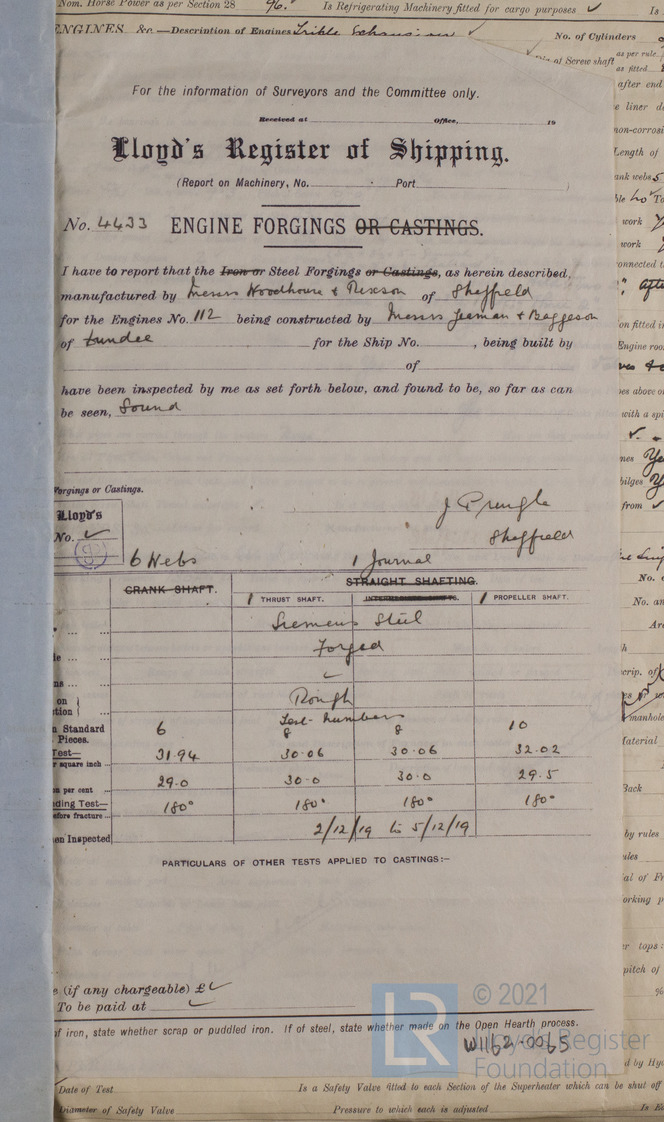 Nom. Horse Power as per Section 28 96. Is Refrigerating Machinery fitted for cargo purposes ✓ Is
ENGINES, &c.—Description of Engines Triple Expansion ✓
No. of Cylinders
as per rule
Dia of Screw shaft
as fitted
after end
For the information of Surveyors and the Committee only.
Received at Office, 19
e liner
non-corrosi
Lloyd's Register of Shipping.
Length of
(Report on Machinery, No. Port )
ank webs 5
No. 4433 ENGINE FORGINGS OR CASTINGS.
work
work
I have to report that the Iron or Steel Forgings or Castings, as herein described,
onnected
manufactured by Messrs Woodhouse & Rixson of Sheffield
for the Engines No. 112 being constructed by Messrs Yeaman & Baggeson
on fitted i
of Dundee for the Ship No. , being built by
Engine roo
of
have been inspected by me as set forth below, and found to be, so far as can
es above o
be seen, Sound
with a spi
Forgings or Castings.
bilges
Lloyd's
J Pringle
from ✓
No. ✓
Sheffield
6 Webs 1 Journal
CRANK SHAFT. STRAIGHT SHAFTING.
No.
1 THRUST SHAFT. INTERMEDIATE SHAFTS. 1 PROPELLER SHAFT.
No. an
Siemens Steel
Forged
✓
crip. of
on
Rough
tion
manhole
Test Numbers
Standard 6 8 8 10
Pieces.
Material
Test— 31.94 30.06 30.06 32.02
square inch
per cent 29.0 30.0 30.0 29.5
Back
ding Test— 180° 180° 180° 180°
efore fracture
en Inspected 2/12/19 to 5/12/19
by rules
ules
PARTICULARS OF OTHER TESTS APPLIED TO CASTINGS:–
ial of
orking p
tops:
pitch of
(if any chargeable) £ ✓
%
To be paid at ✓
© 2021
of iron, state whether scrap or puddled iron. If of steel, state whether made on the Open Hearth process.
LR
Lloyd's Register
W1162-0065
Foundation
d by Hyd
Date of Test Is a Safety Valve fitted to each Section of the Superheater which can be shut off
Diameter of Safety Valve Pressure to which each is adjusted Is